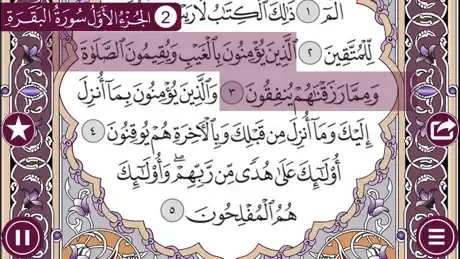 2 الجزء الأول سورة البقرة
الٓمٓ ١ ذَٰلِكَ ٱلْكِتَٰبُ لَا رَيْبَ
لِّلْمُتَّقِينَ ٢ ٱلَّذِينَ يُؤْمِنُونَ بِٱلْغَيْبِ وَيُقِيمُونَ ٱلصَّلَوٰةَ
وَمِمَّا رَزَقْنَٰهُمْ يُنفِقُونَ ٣ وَٱلَّذِينَ يُؤْمِنُونَ بِمَآ أُنزِلَ
إِلَيْكَ وَمَآ أُنزِلَ مِن قَبْلِكَ وَبِٱلْءَاخِرَةِ هُمْ يُوقِنُونَ ٤
أُو۟لَٰٓئِكَ عَلَىٰ هُدًى مِّن رَّبِّهِمْ ۖ وَأُو۟لَٰٓئِكَ
هُمُ ٱلْمُفْلِحُونَ ٥